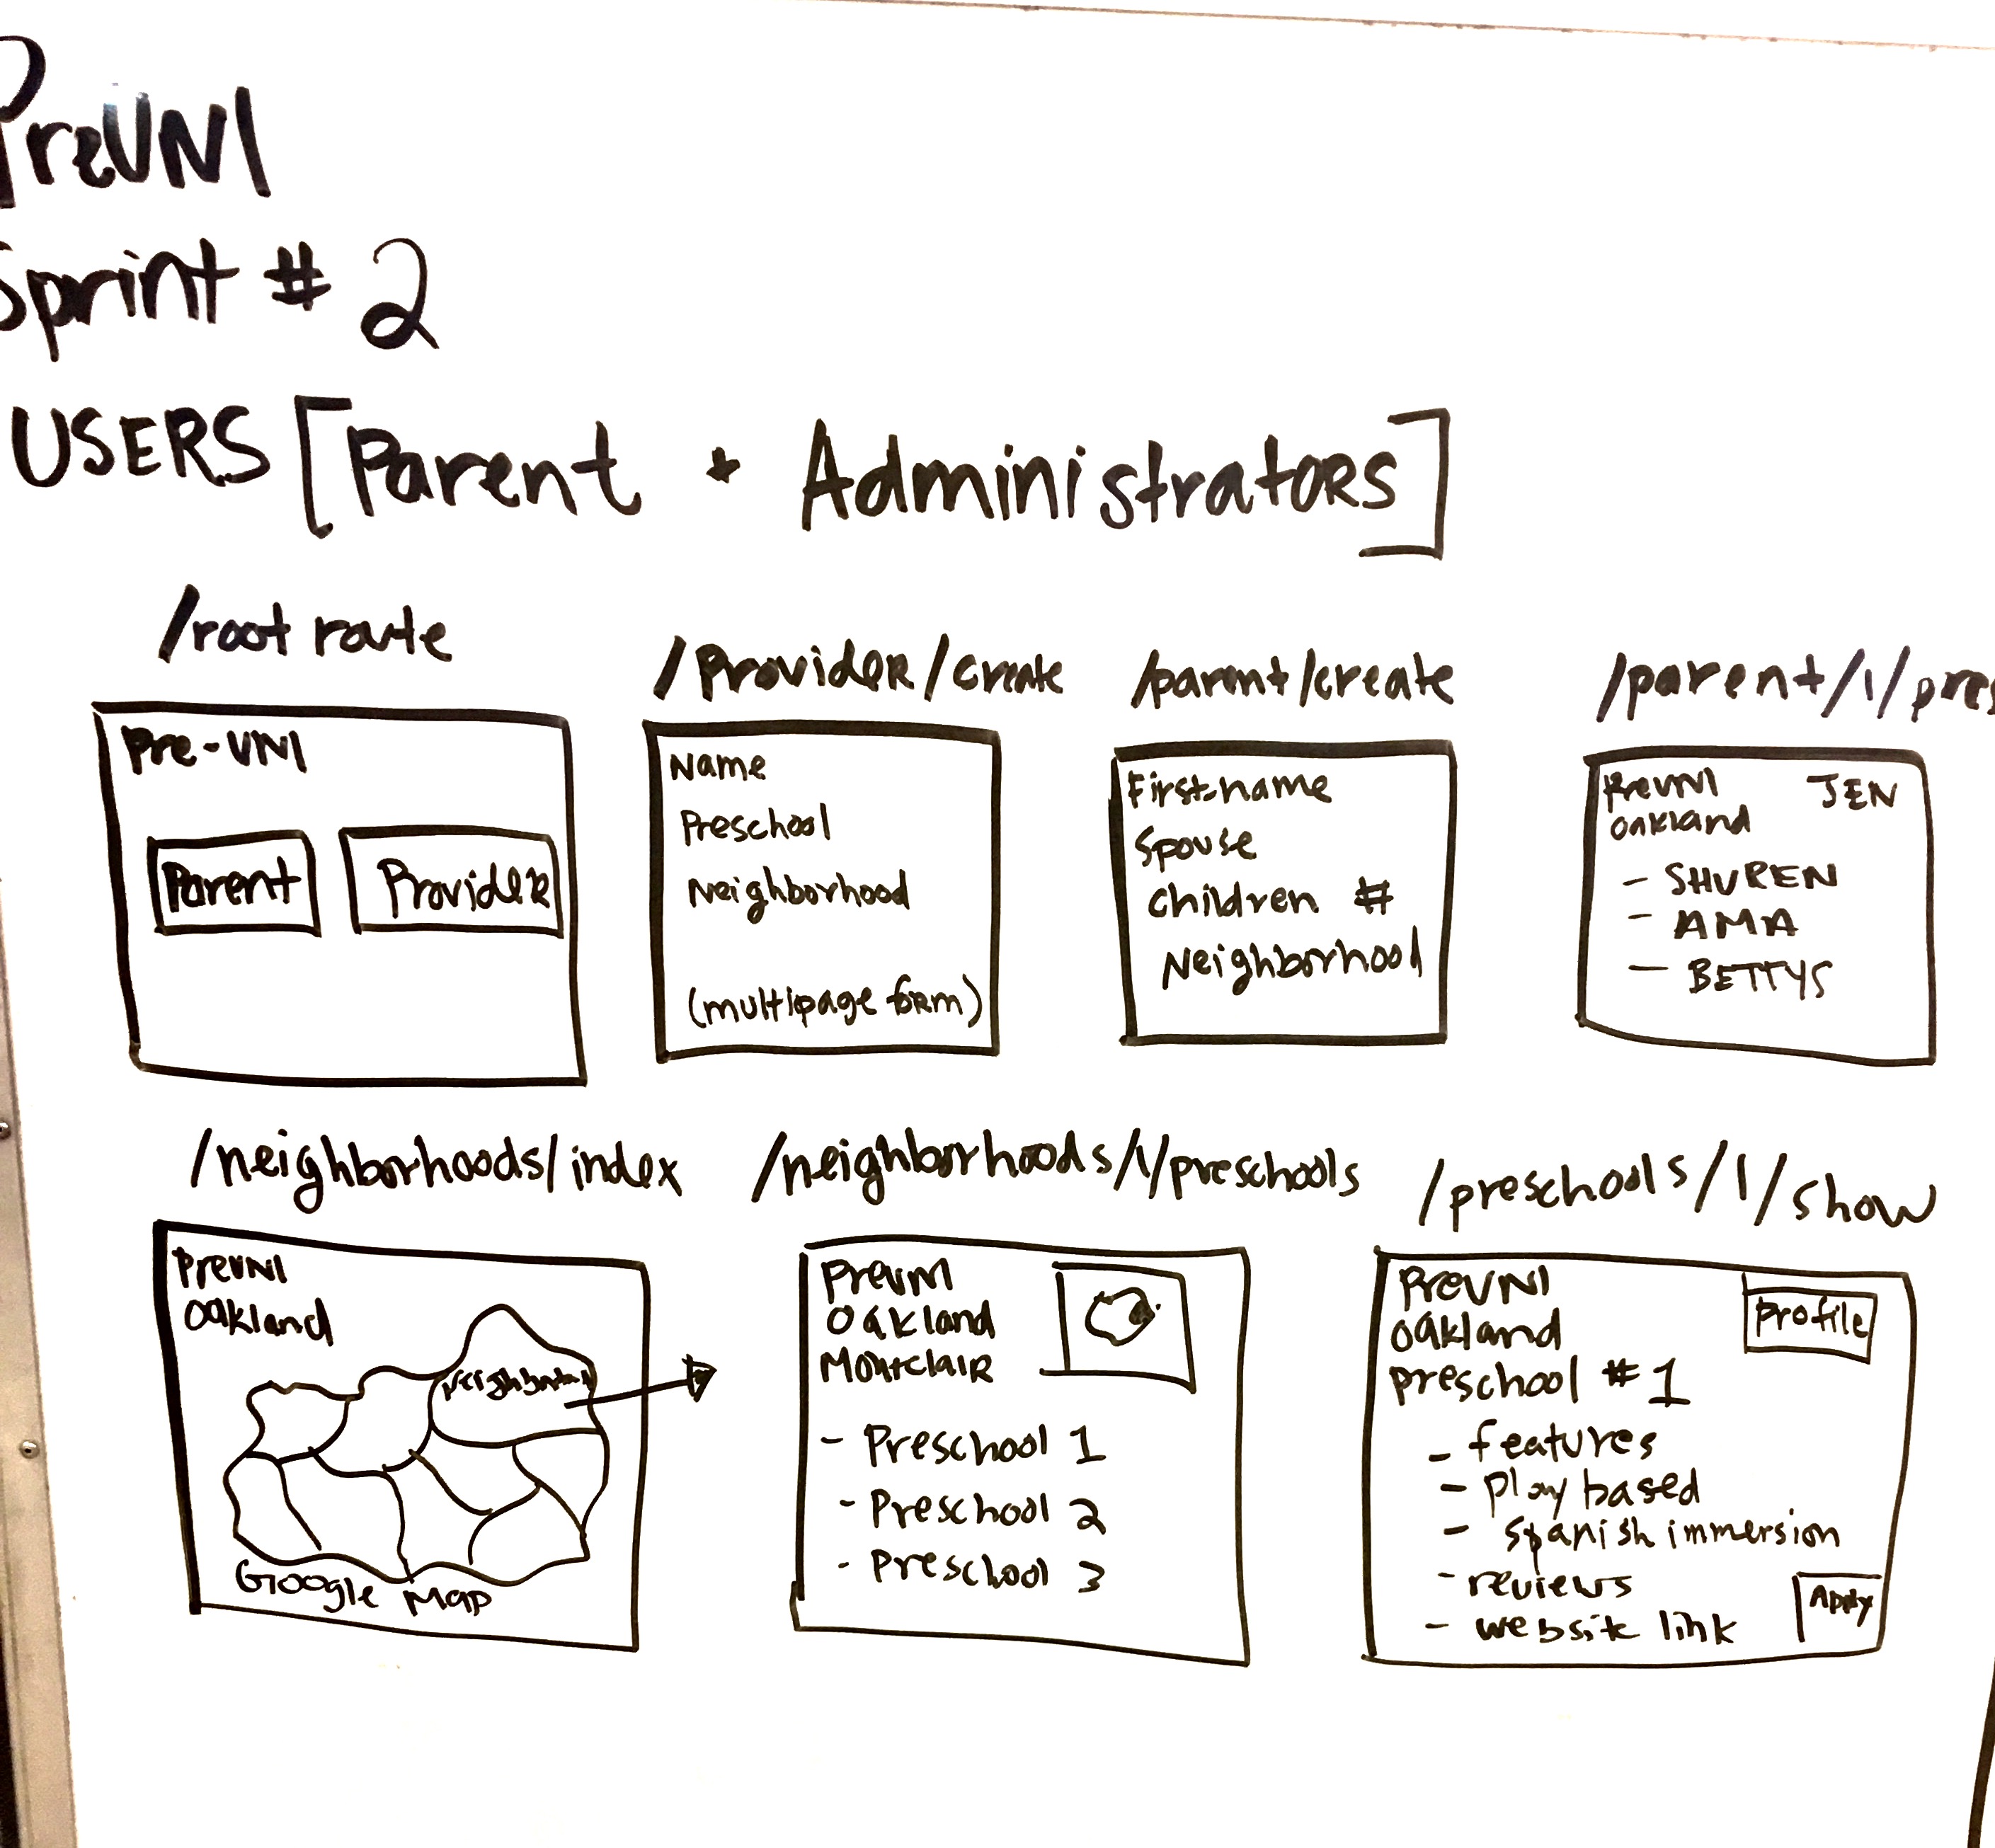 PreUNI
Sprint # 2
USERS [Parent + Administrators]
/root route
Pre-UNI
Parent
Provider
/Provider/create
Name
Preschool
Neighborhood
(multipage form)
/parent/create
First-name
Spouse
Children #
Neighborhood
/parent/1/pres
PreUNI JEN
Oakland
- SHUREN
- AMA
- BETTYS
/neighborhoods/index
PreUNI
Oakland
Neighborhood
Google Map
/neighborhoods/1/preschools
PreUNI
Oakland
Montclair
- Preschool 1
- Preschool 2
- Preschool 3
/preschools/1/show
PreUNI
Profile
Oakland
preschool #1
- features
- play based
- Spanish immersion
- reviews
- website link
Apply